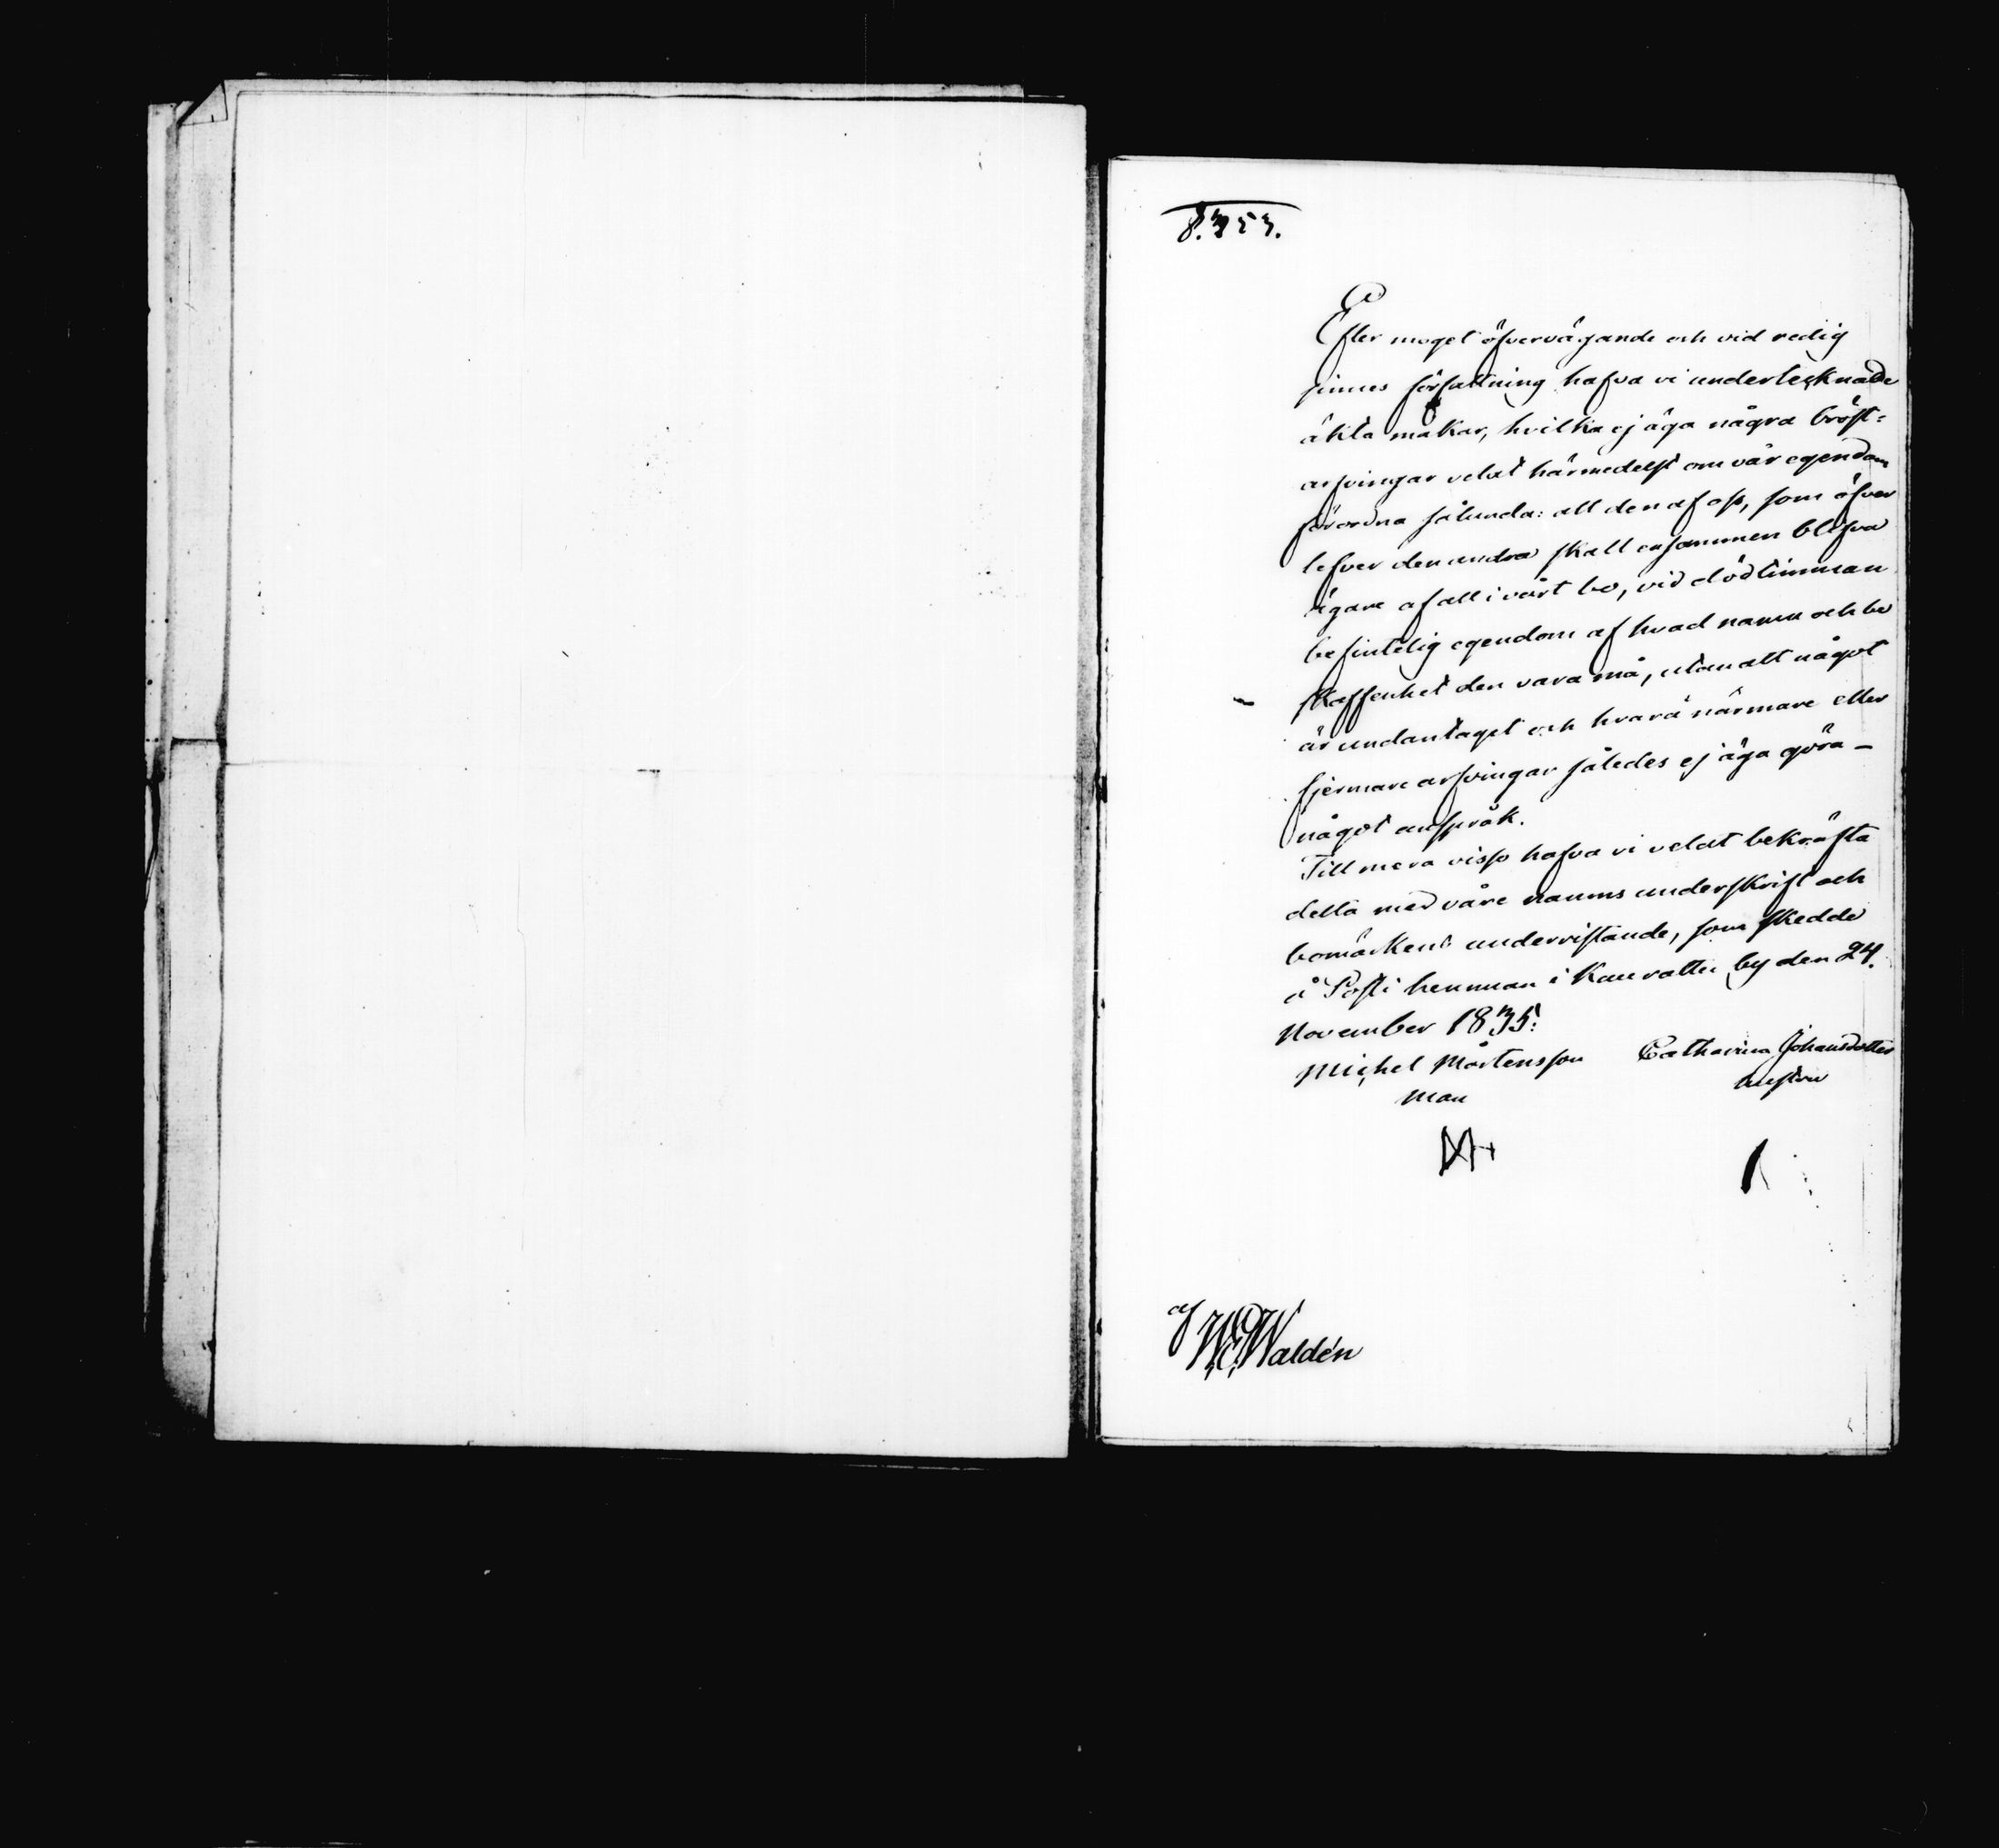 8.353.
Efter moget öfvervägande och vid redig
sinnes författning hafva vi undertecknade
äkta makar, hvilka ej äga några bröst=
arfvingar velat härmedelst om vår egendom
förordna sålunda: att den af oss, som öfver
lefver den andra skall ensammen blifva
ägare af all i vårt bo, vid dödtimman
befintelig egendom af hvad namn och be
skaffenhet den vara må, utan att något
är undantaget och hvarå närmare eller
fjermare arfvingar således ej äga göra –
något anspråk.
Till mera visso hafva vi velat bekräfta
detta med våre namns underskrift och
bomärkens undervistande, som skedde
å Posti hemman i Kauvattu by den 24.
November 1835:
Michel Mårtensson Catharina Johansdotter
man hustru
af
W.E.Waldén